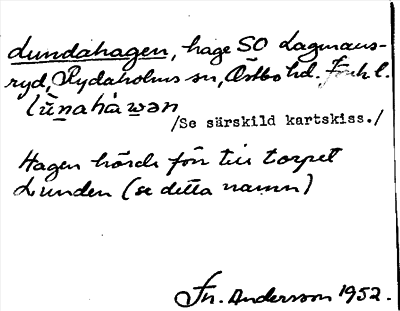 Lundahagen, hage SO Lagmans-
ryd, Rydaholms sn, Östbo hd. Jönk l.
lùnahàwən
/Se särskild kartskiss./
Hagen hörde förr till torpet
Lunden (se detta namn)
Fr. Andersson 1952.